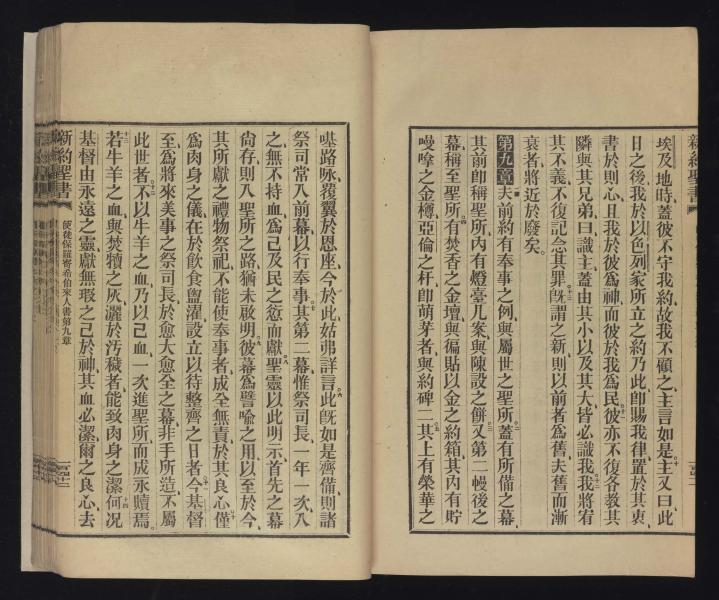 埃及地時、蓋彼不守我約、故我不顧之、主言如是、十主又曰、此
日之後、我於以色列家所立之約乃此、卽賜我律、置於其衷、
書於則心、且我於彼爲神、而彼於我爲民、十一彼亦不復各教其
隣與其兄弟曰、識主、蓋由其小以及其大、皆必識我、十二我將宥
其不義、不復記念其罪、十三旣謂之新、則以前者爲舊、夫舊而漸
衰者、將近於廢矣。
第九章 夫前約有奉事之例、與屬世之聖所、二蓋有所備之幕、
其前卽稱聖所、內有燈臺几案、與陳設之餅、三又第二幔後之
幕、稱至聖所、四有焚香之金壇、與徧貼以金之約箱、其內有貯
嗎嗱之金樽、亞倫之杆、卽萌芽者、與約碑二、五其上有榮華之
𠼻路咏、覆翼於恩座、今於此姑弗詳言、六此旣如是齊備、則諸
祭司常入前幕以行奉事、七其第二幕、惟祭司長一年一次入
之、無不持血、爲己及民之愆而獻、八聖靈以此明示首先之幕
尙存、則入聖所之路猶未啟明、九彼幕爲譬喩之用、以至於今、
其所獻之禮物祭祀、不能使奉事者成全無責於其良心、十僅
爲肉身之儀、在於飲食盥濯、設立以待整齊之日者、十一今基督
至、爲將來美事之祭司長、於愈大愈全之幕、非手所造、不屬
此世者、十二不以牛羊之血、乃以己血、一次進聖所、而成永贖焉。
十三若牛羊之血、與焚犢之灰、灑於汚穢者、能致肉身之潔、十四何况
基督由永遠之靈獻無瑕之己於神、其血必潔爾之良心、去
新約聖書
使徒保羅寄希伯來人書第九章